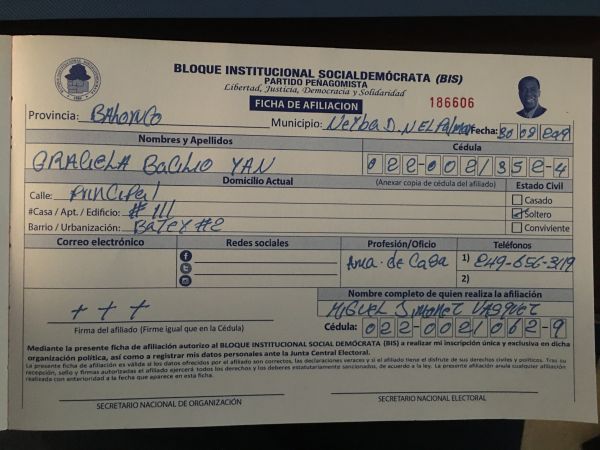 BLOQUE INSTITUCIONAL SOCIALDEMÓCRATA (BIS)
PARTIDO PEÑAGOMISTA
Libertad, Justicia, Democracia y Solidaridad
FICHA DE AFILIACION
186606
Provincia: BAhoruco Municipio: Neyba D. N EL Palmar Fecha: 30 08 2019
Nombres y Apellidos Cédula
GRACIELA BACILIO YAN 022-0021352-4
Domicilio Actual (Anexar copia de cédula del afiliado) Estado Civil
Calle: Principal Casado
#Casa / Apt. / Edificio: # 111 Soltero
Barrio / Urbanización: BaTey #2 Conviviente
Correo electrónico Redes sociales Profesión/Oficio Teléfonos
Ama de Casa 1) 849-656-3119
2)
Nombre completo de quien realiza la afiliación
+ + + MIGUEL Simonet VASQUEZ
Firma del afiliado (Firme igual que en la Cédula) Cédula: 022-0021062-9
Mediante la presente ficha de afiliación autorizo al BLOQUE INSTITUCIONAL SOCIAL DEMÓCRATA (BIS) a realizar mi inscripción única y exclusiva en dicha
organización política, así como a registrar mis datos personales ante la Junta Central Electoral.
La presente ficha de afiliación es válida si los datos ofrecidos por el afiliado son correctos, las declaraciones veraces y si el afiliado tiene el disfrute de sus derechos civiles y políticos. Tras su
recepción, sello y firmas autorizadas el afiliado ejercerá todos los derechos y los deberes estatutariamente sancionados, de acuerdo a la ley. La presente afiliación anula cualquier afiliación
realizada con anterioridad a la fecha que aparece en esta ficha.
SECRETARIO NACIONAL DE ORGANIZACIÓN SECRETARIO NACIONAL ELECTORAL